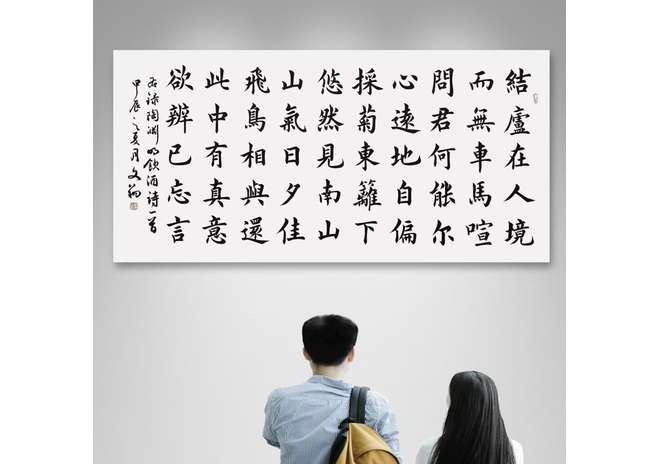 結廬在人境
而無車馬喧
問君何能尔
心遠地自偏
採菊東籬下
悠然見南山
山氣日夕佳
飛鳥相與還
此中有真意
欲辨已忘言
右録陶渊明飲酒诗一首
甲辰之夏月文翰